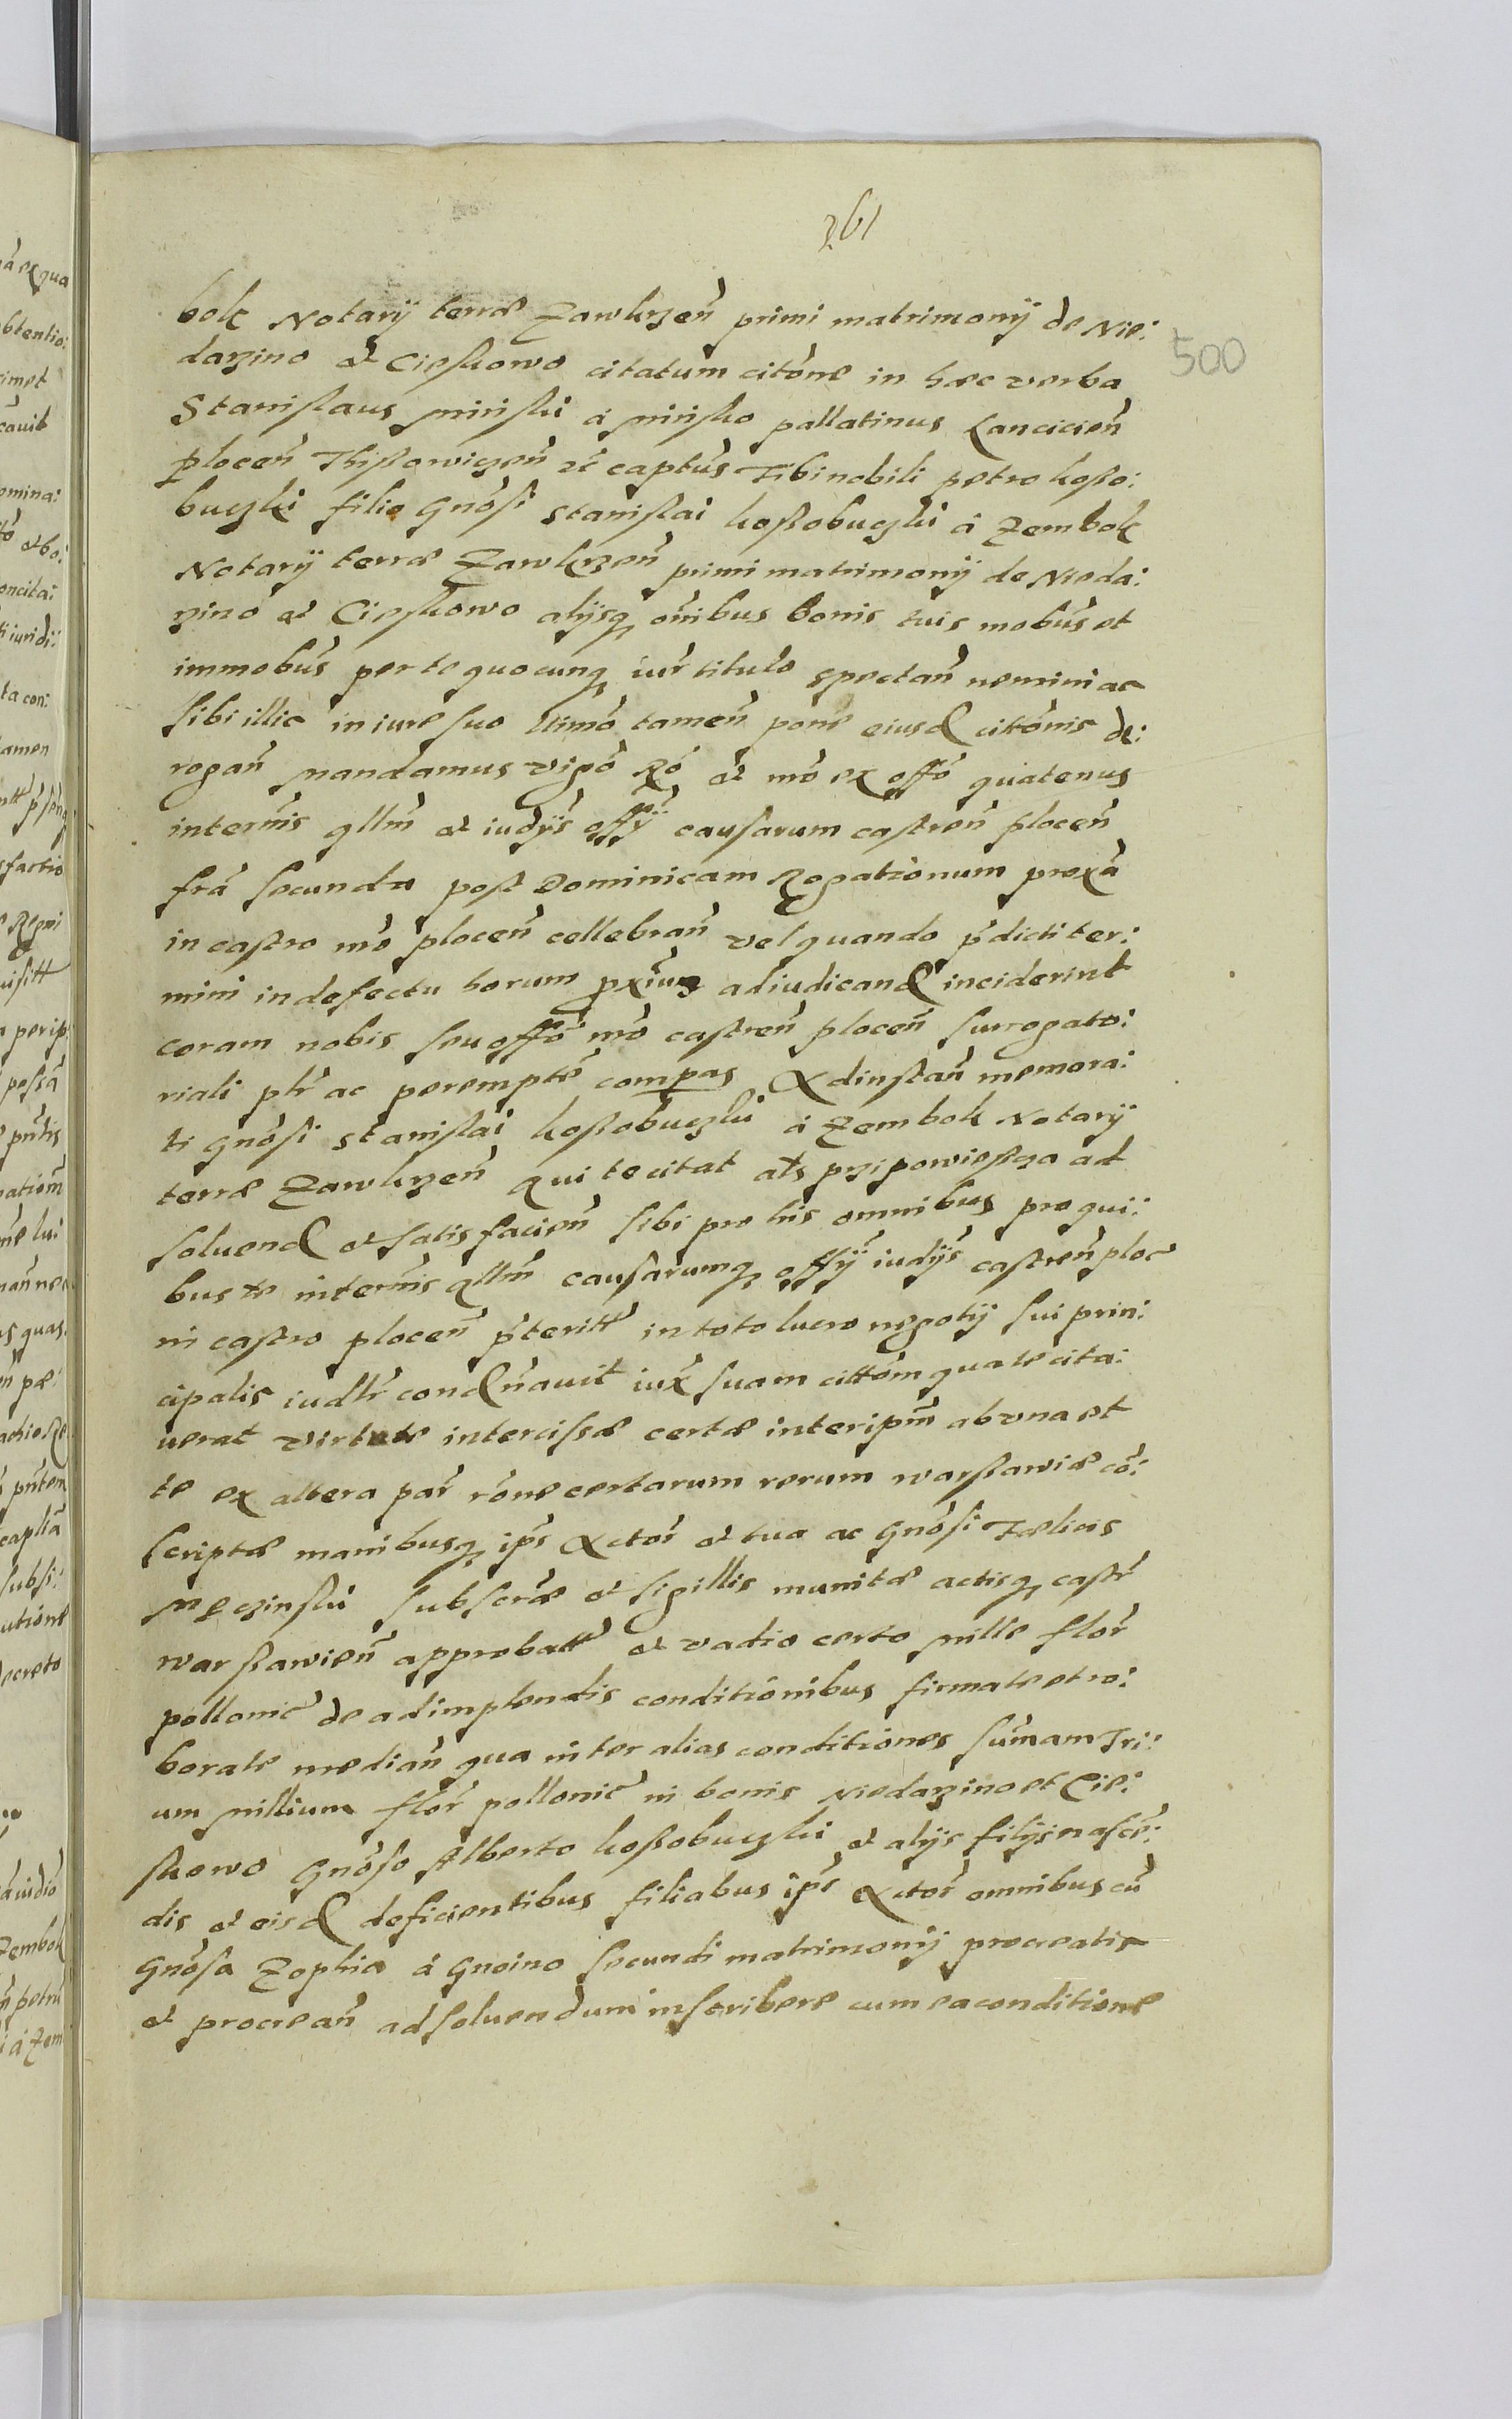 361
500
bok Notarÿ terræ Zawkrzen̄ primi matrimonÿ de Nie:
darzino et Cieskowo citatum citõne in hæc verba
Stanislaus Minski á Minsko pallatinus Lancicien̄
plocen̄ Thissowiczen̄ etc captus Tibi nobili petro kosso:
buczki filio Gnõsi Stanislai kossobuczki á Zembok
Notarÿ terræ Zawkrzen̄ primi matrimonÿ de Nieda:
rzino et Cieskowo alÿsq̨ om̃ibus bonis tuis mobũs et
immobũs per te quocunq̨ iur̃ titulo spectan̄ nemini ac
sibi illic in iure suo ... tamen pone eiusd cittõnis de:
rogan̄ Mandamus vigõ Rõ et ñro ex offõ quatenus
in term̃is qllm̃ et iudÿs offÿ causarum castren̄ plocen̄
frã secunda post Dominicam Rogationum proxã
in castro ñro plocen̄ cellebran̄ vel quando p̃dicti ter:
mini in defectu horum pxĩus adiudicand inciderint
coram nobis seu offõ ñro castren̄ plocen̄ surrogato:
riali ptr̃ ac perempt̃e compas Adinstan̄ memora:
ti Gnõsi Stanislai kossobuczki á Zembok Notarÿ
terræ Zawkrzen̄ qui te citat als przipowiescza ad
soluend et satisfacien̄ sibi pro his omnibus pro qui:
bus te in term̃is qllm̃ causarumq̨ offÿ iudÿs castren̄ ploc
in castro plocen̄ p̃teritt in toto lucro negotÿ sui prin:
cipalis iudtr̃ cond̃nauit iux̃ suam cittõm qua te cita:
uerat virtute intercissæ certæ inter ipm̃ ab vna et
te ex altera par̃ rõne certarum rerum warssawiæ cõ:
scriptæ manibusq̨ ip̃s Actor̃ et tua ac Gnõsi Fælicis
Mezinski subscr̃æ et sigillis munitæ actisq̨ castr̃
warssawien̄ approbatt et vadio certo Mille flor̃
pollonic̃ de adimplendis conditionibus firmate et ro:
borate median̄ qua inter alias conditiones sum̃am Tri:
um Millium flor̃ pollonic̃ in bonis Niedarzino et Cie:
skowo Gnõso Alberto kossobuczki et alÿs filÿs nascẽ:
dis et eisd deficientibus filiabus ip̃s Actor̃ omnibus cũ
Gnõsa Zophia á Gnoino secundi matrimonÿ procreatis
et procrean̄ ad soluendum inscribere cum ea conditione